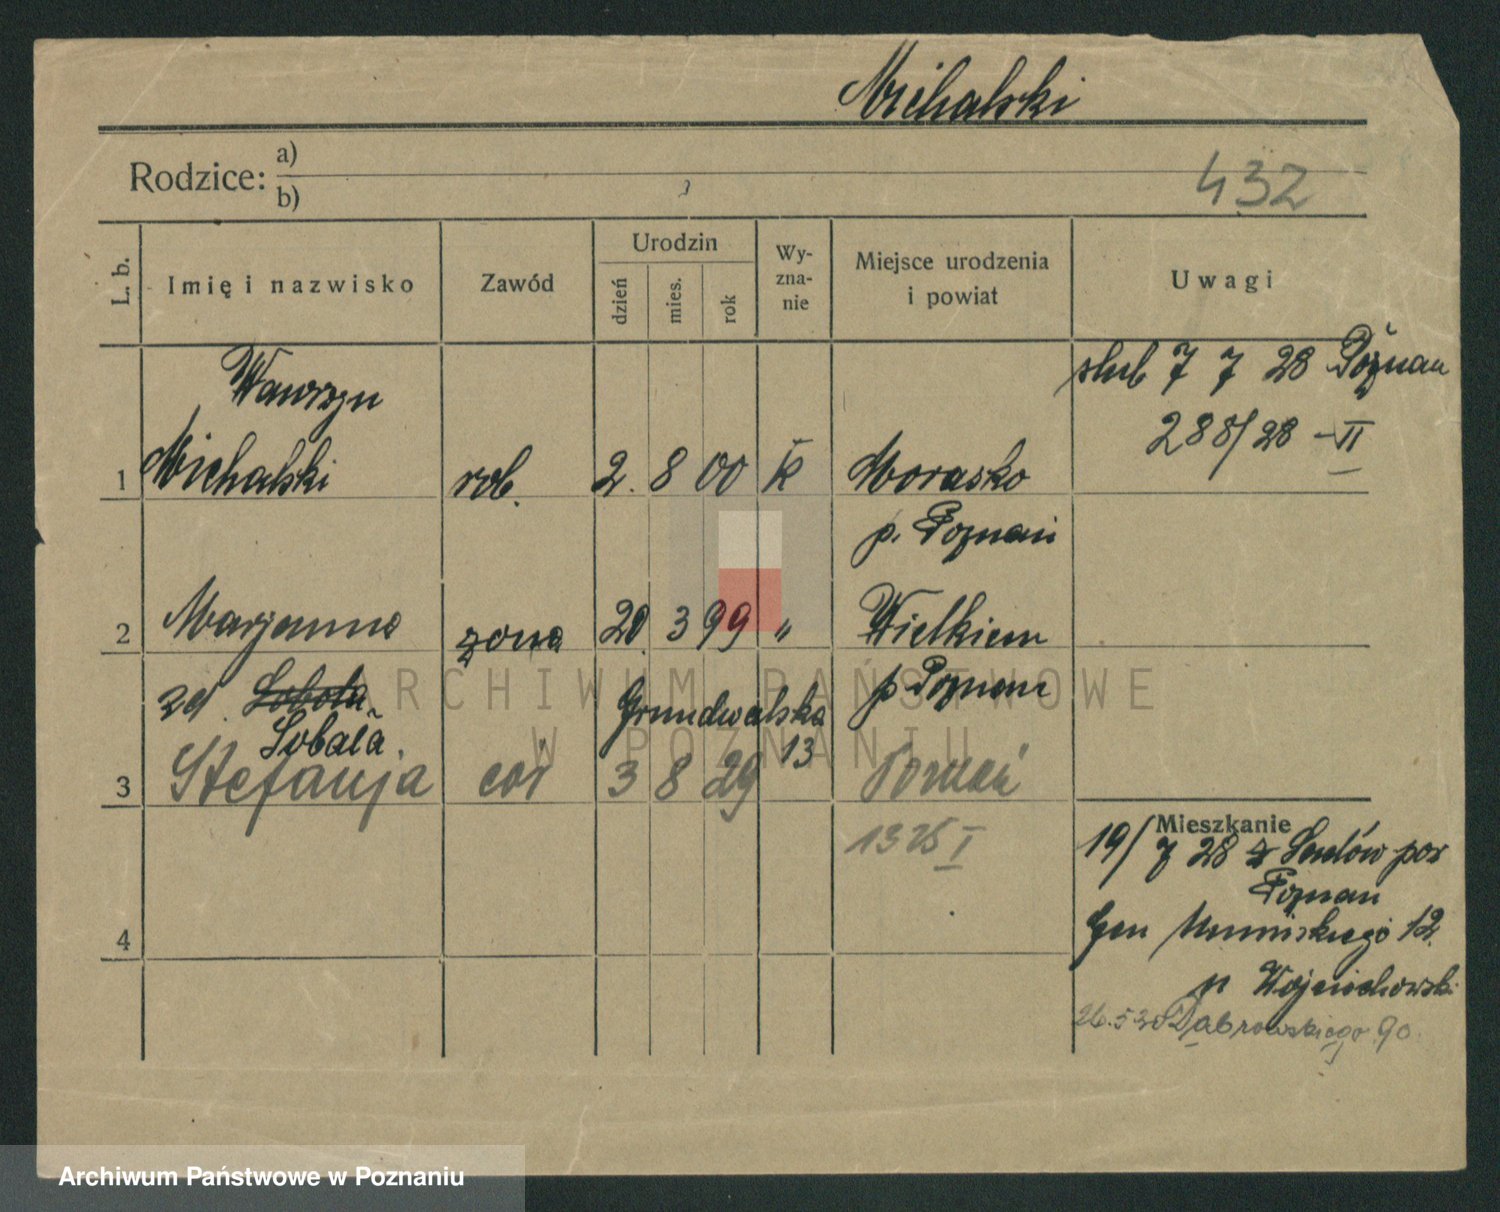 Michalski
Rodzice: a)
b)
432
L. b.
Imię i nazwisko
Zawód
Urodzin
dzień
mies.
rok
Wy-
zna-
nie
Miejsce urodzenia
i powiat
Uwagi
Wawrzyn
ślub 7 7 28 Poznań
288/28 - II
1 Michalski rob. 2. 8 00 k Morasko
p. Poznań
2 Marjanna żona 20. 3 99 " Wielkiem
zd. Sobola p Poznań
Sobala. Grundwalska
13
3 Stefanja cór 3 8 29 Poznań
1325 I
Mieszkanie
19/7 28 z
Poznań
Gen 12.
p Wojciechowski
26.5 30 Dąbrowskiego 90.
4
ARCHIWUM PAŃSTWOWE
W POZNANIU
Archiwum Państwowe w Poznaniu